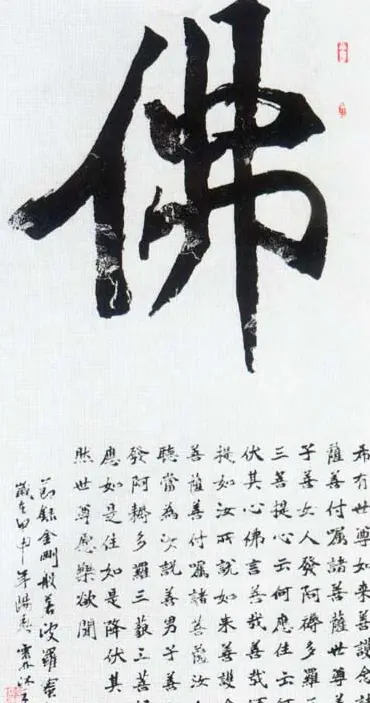 佛
希有世尊如來善護念諸
薩善付囑諸菩薩世尊善
子善女人發阿耨多羅三
三菩提心云何應住云何
伏其心佛言善哉善哉
提如汝所說如來善護念
菩薩善付囑諸菩薩汝
聽當為汝說善男子善
發阿耨多羅三藐三菩提
應如是住如是降伏其
然世尊愿樂欲聞
節錄金剛般若波羅蜜
歲在甲申年陽春